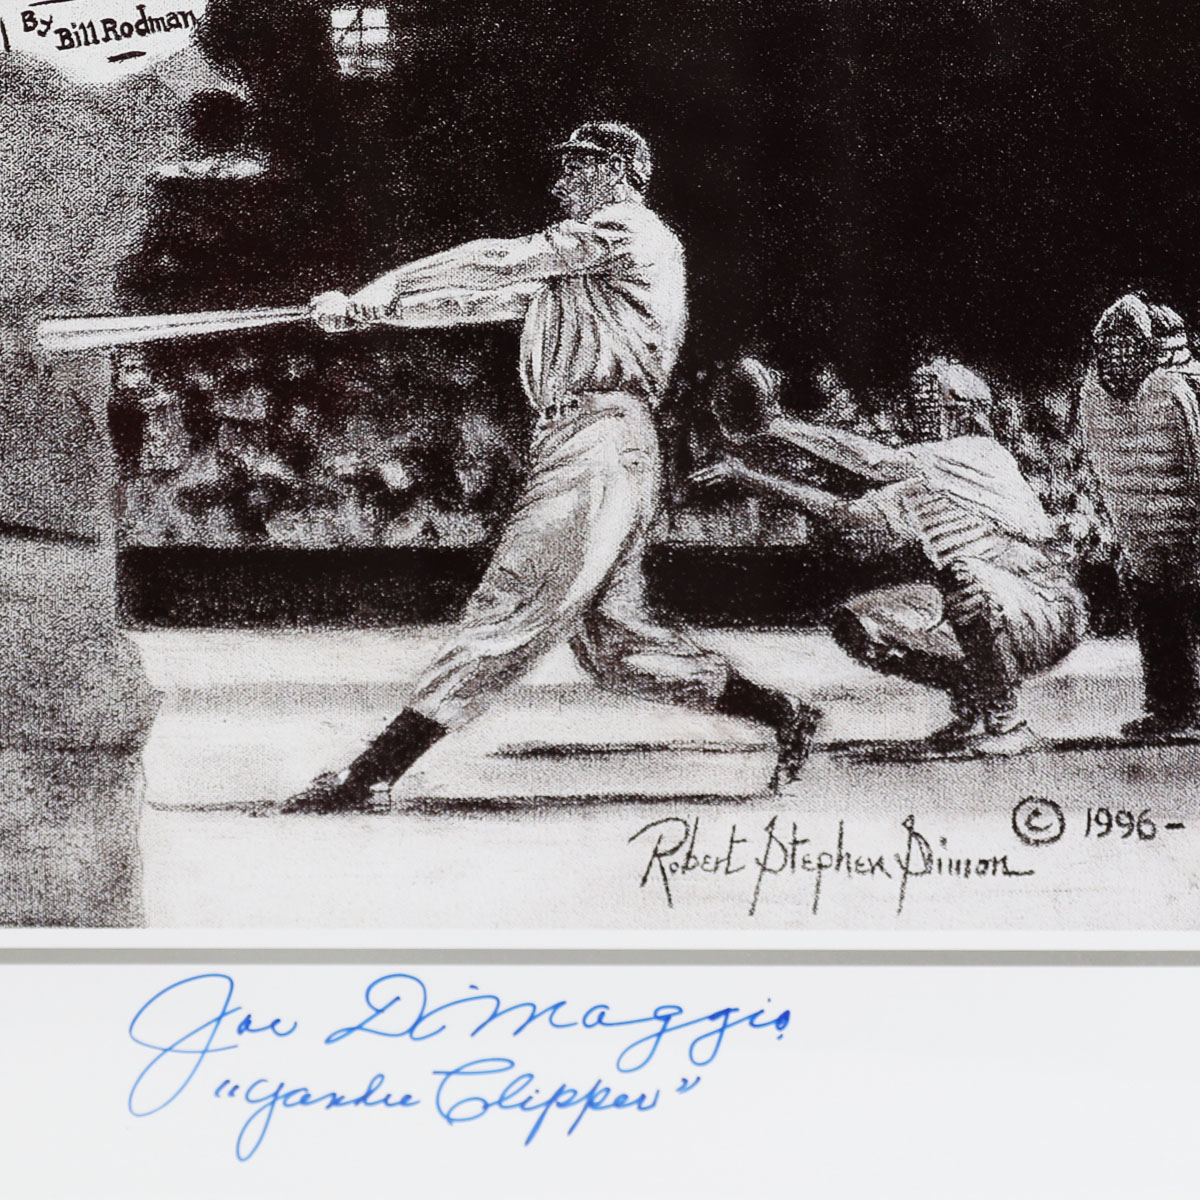 By Bill Rodman
© 1996-
Robert Stephen Simon
Joe DiMaggio
"Yankee Clipper"